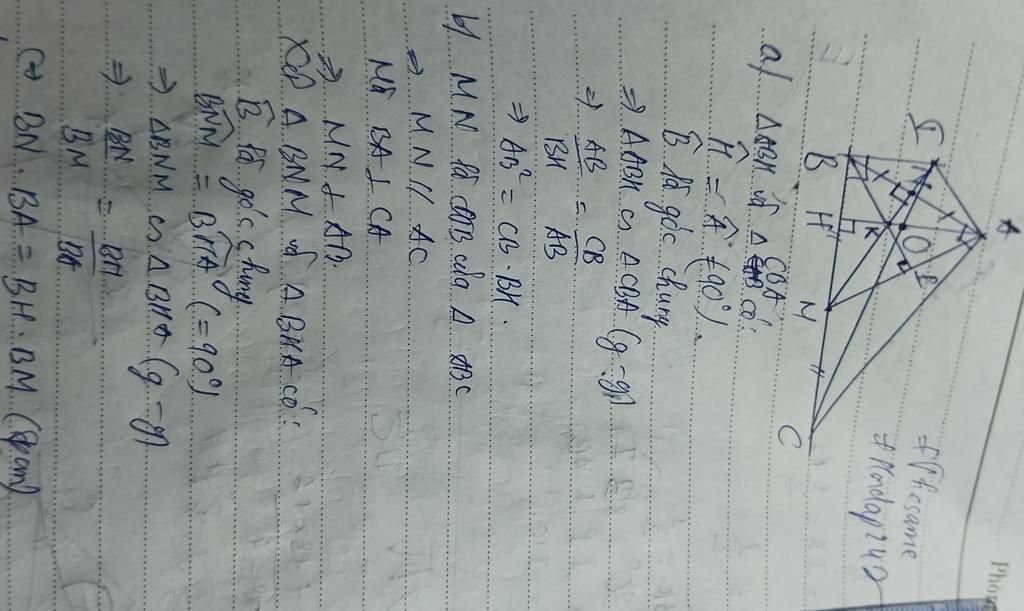 #Thesame
#Hoidap247
A
I
N
O
E
K
B
H
M
C
a) ΔABH và ΔCBA có:
Ĥ = Â (=90°)
B̂ là góc chung
⇒ ΔABH ∽ ΔCBA (g-g)
⇒ AB/BH = CB/AB
⇒ AB² = CB.BH.
b) MN là đtb của Δ ABC
⇒ MN // AC
Mà BA⊥ CA
⇒ MN ⊥ AB.
Xét Δ BNM và Δ BHA có:
B̂ là góc chung
BNM = BHA (=90°)
⇒ ΔBNM ∽ ΔBHA (g-g)
⇒ BN/BM = BH/BA
⇔ BN.BA = BH.BM (đpcm)